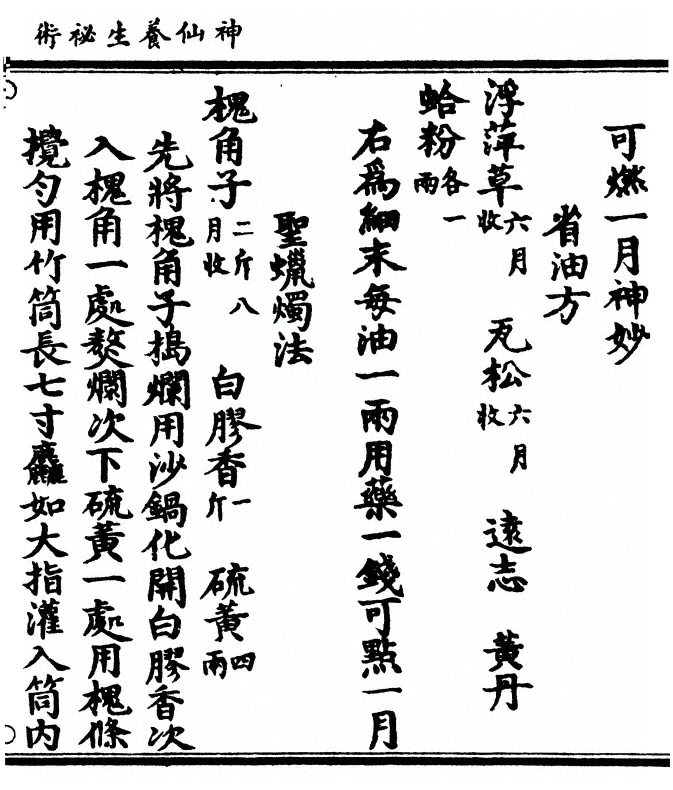 神仙養生祕術
可燃一月神妙
省油方
浮萍草六月收 瓦松六月收 遠志 黃丹
蛤粉各一兩
右爲細末每油一兩用藥一錢可點一月
聖蠟燭法
槐角子二斤八月收 白膠香一斤 硫黃四兩
先將槐角子搗爛用沙鍋化開白膠香次
入槐角一處熬爛次下硫黃一處用槐條
攪勻用竹筒長七寸麤如大指灌入筒內